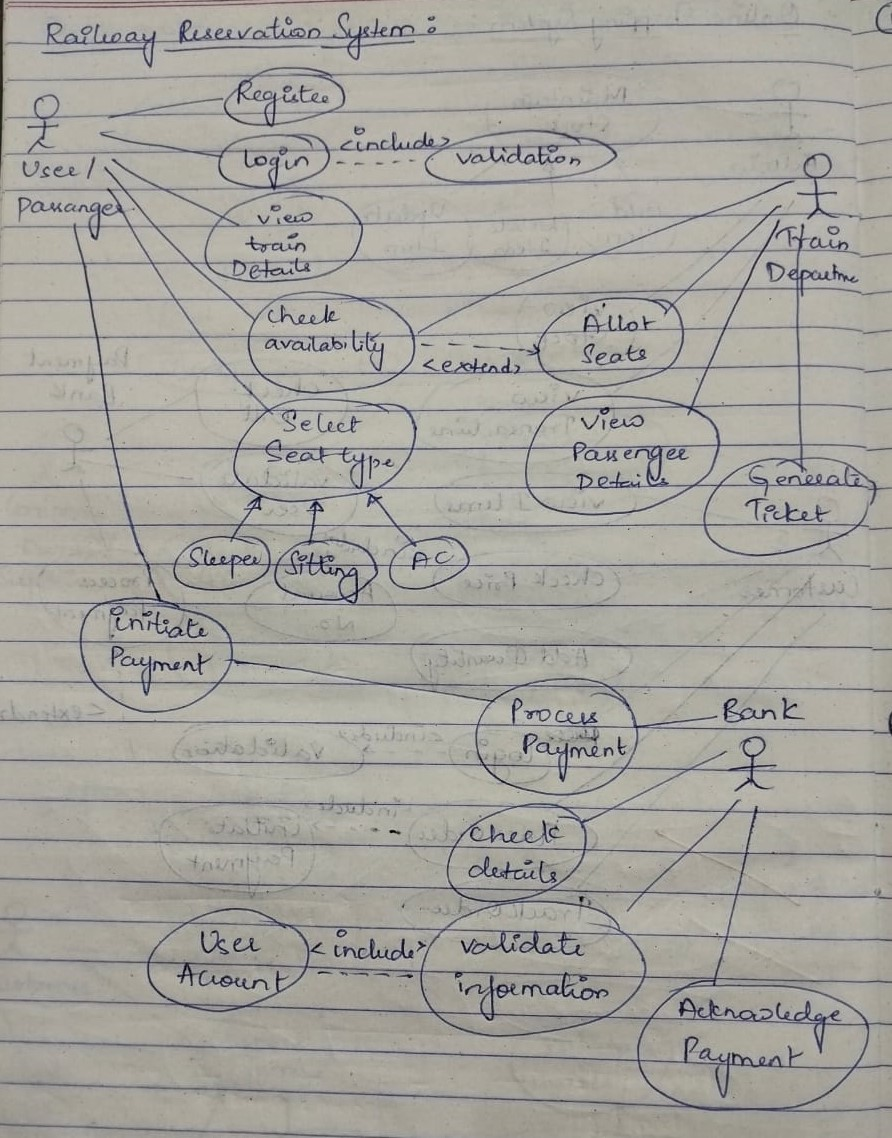 Railway Reservation System :
Register
User /
Passanger
login
<include>
validation
view
train
Details
Train
Departme
check
availability
<extend>
Allot
Seats
Select
Seat type
view
Passenger
Details
Generate
Ticket
Sleeper
Sitting
AC
initiate
Payment
Process
Payment
Bank
check
details
User
Account
<include>
validate
information
Acknowledge
Payment